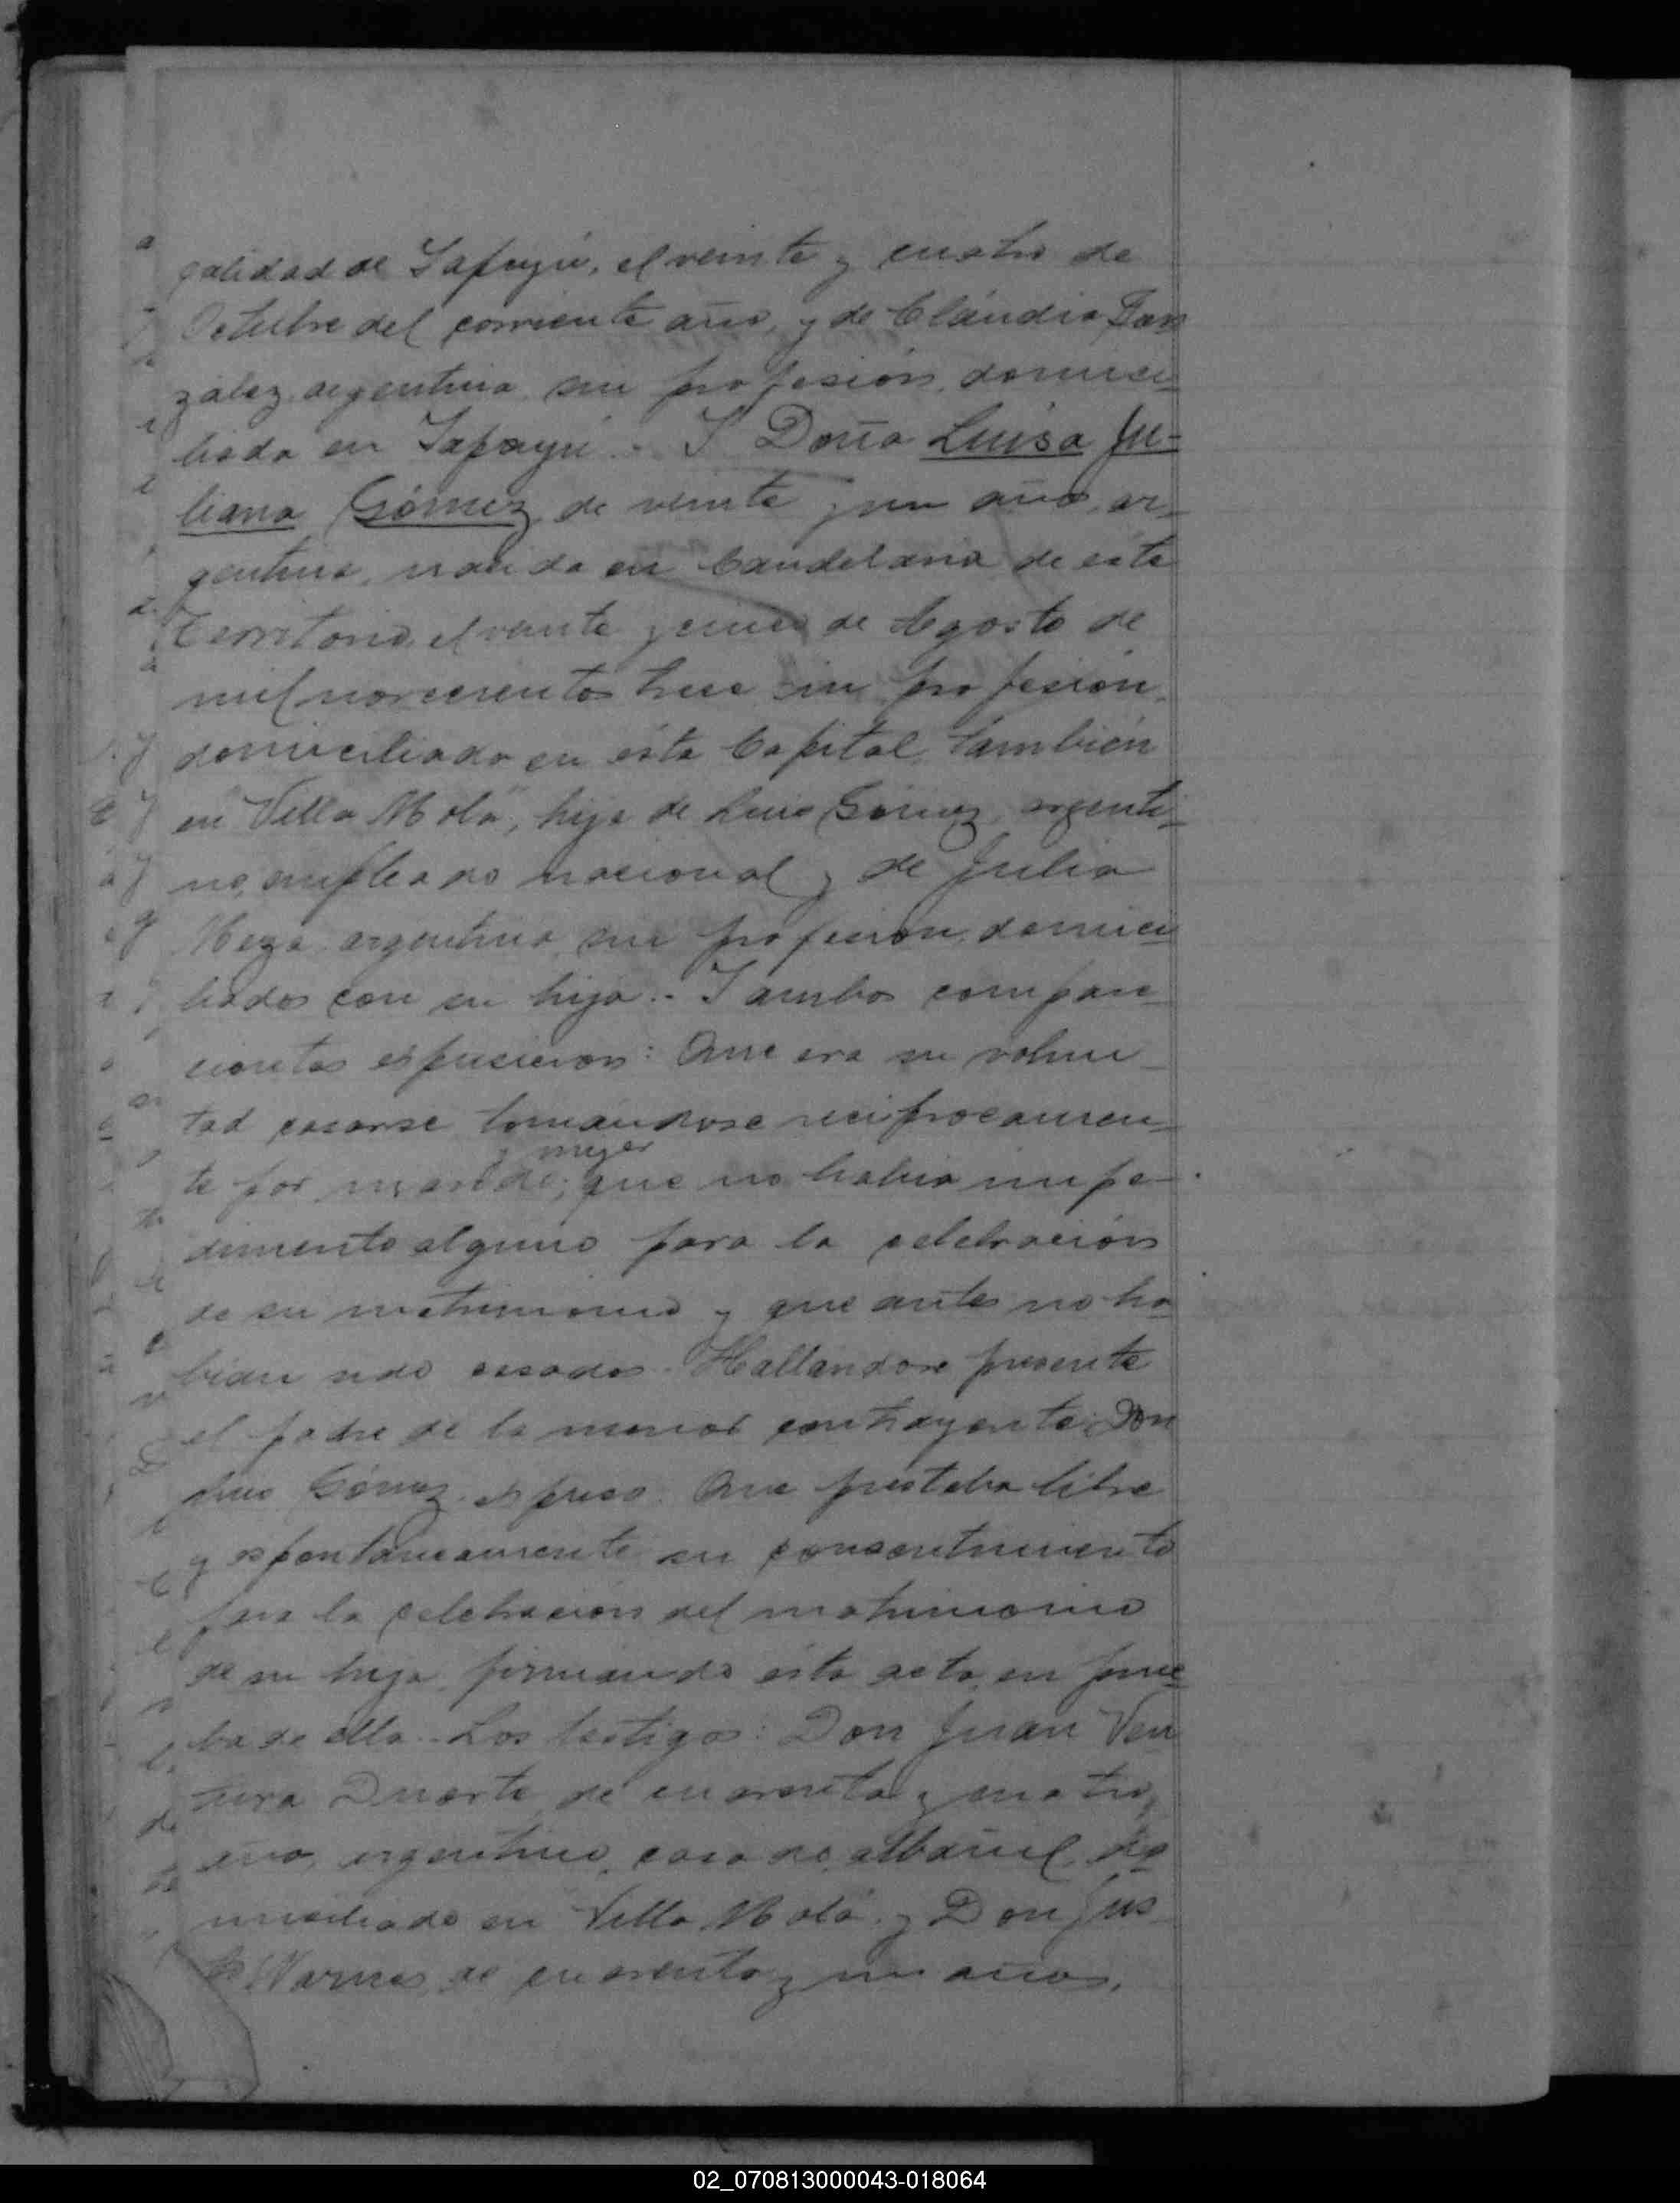 galidad de Yapeyú, el veinte y cuatro de
Octubre del corriente año, y de Cláudia Gon
zález argentina sin profesión, domici-
liada en Yapeyú.- Y Doña Luisa Ju-
liana Gómez, de veinte y un años, ar-
gentina, nacida en Candelaria de este
Territorio, el veinte y cinco de Agosto de
mil novecientos trece sin profesión,
domiciliada en ésta Capital, también
en "Villa Mola", hija de Luis Gómez, argenti-
no, empleado nacional y de Julia
Meza argentina, sin profesion, domici-
liados con su hija.- Y ambos compare-
cientes espusieron: Que era su volun-
tad casarse tomandose reciprocamen-
y mujer
te por marido; que no habia impe-
dimento alguno para la celebración
de su matrimonio y que antes no ha-
bian sido casados. Hallandose presente
el padre de la menor contrayente; Don
Luis Gómez, espuso: Que prestaba libre
y espontaneamente su consentimiento
para la celebración del matrimonio
de su hija, firmando ésta acta, en prue-
ba de ello.- Los testigos: Don Juan Ven
tura Duarte, de cuarenta y cuatro
años, argentino, casado, albañil, do-
miciliado en "Villa Mola" y Don Jus
to Warnes, de cuarenta y un años,
02_070813000043-018064